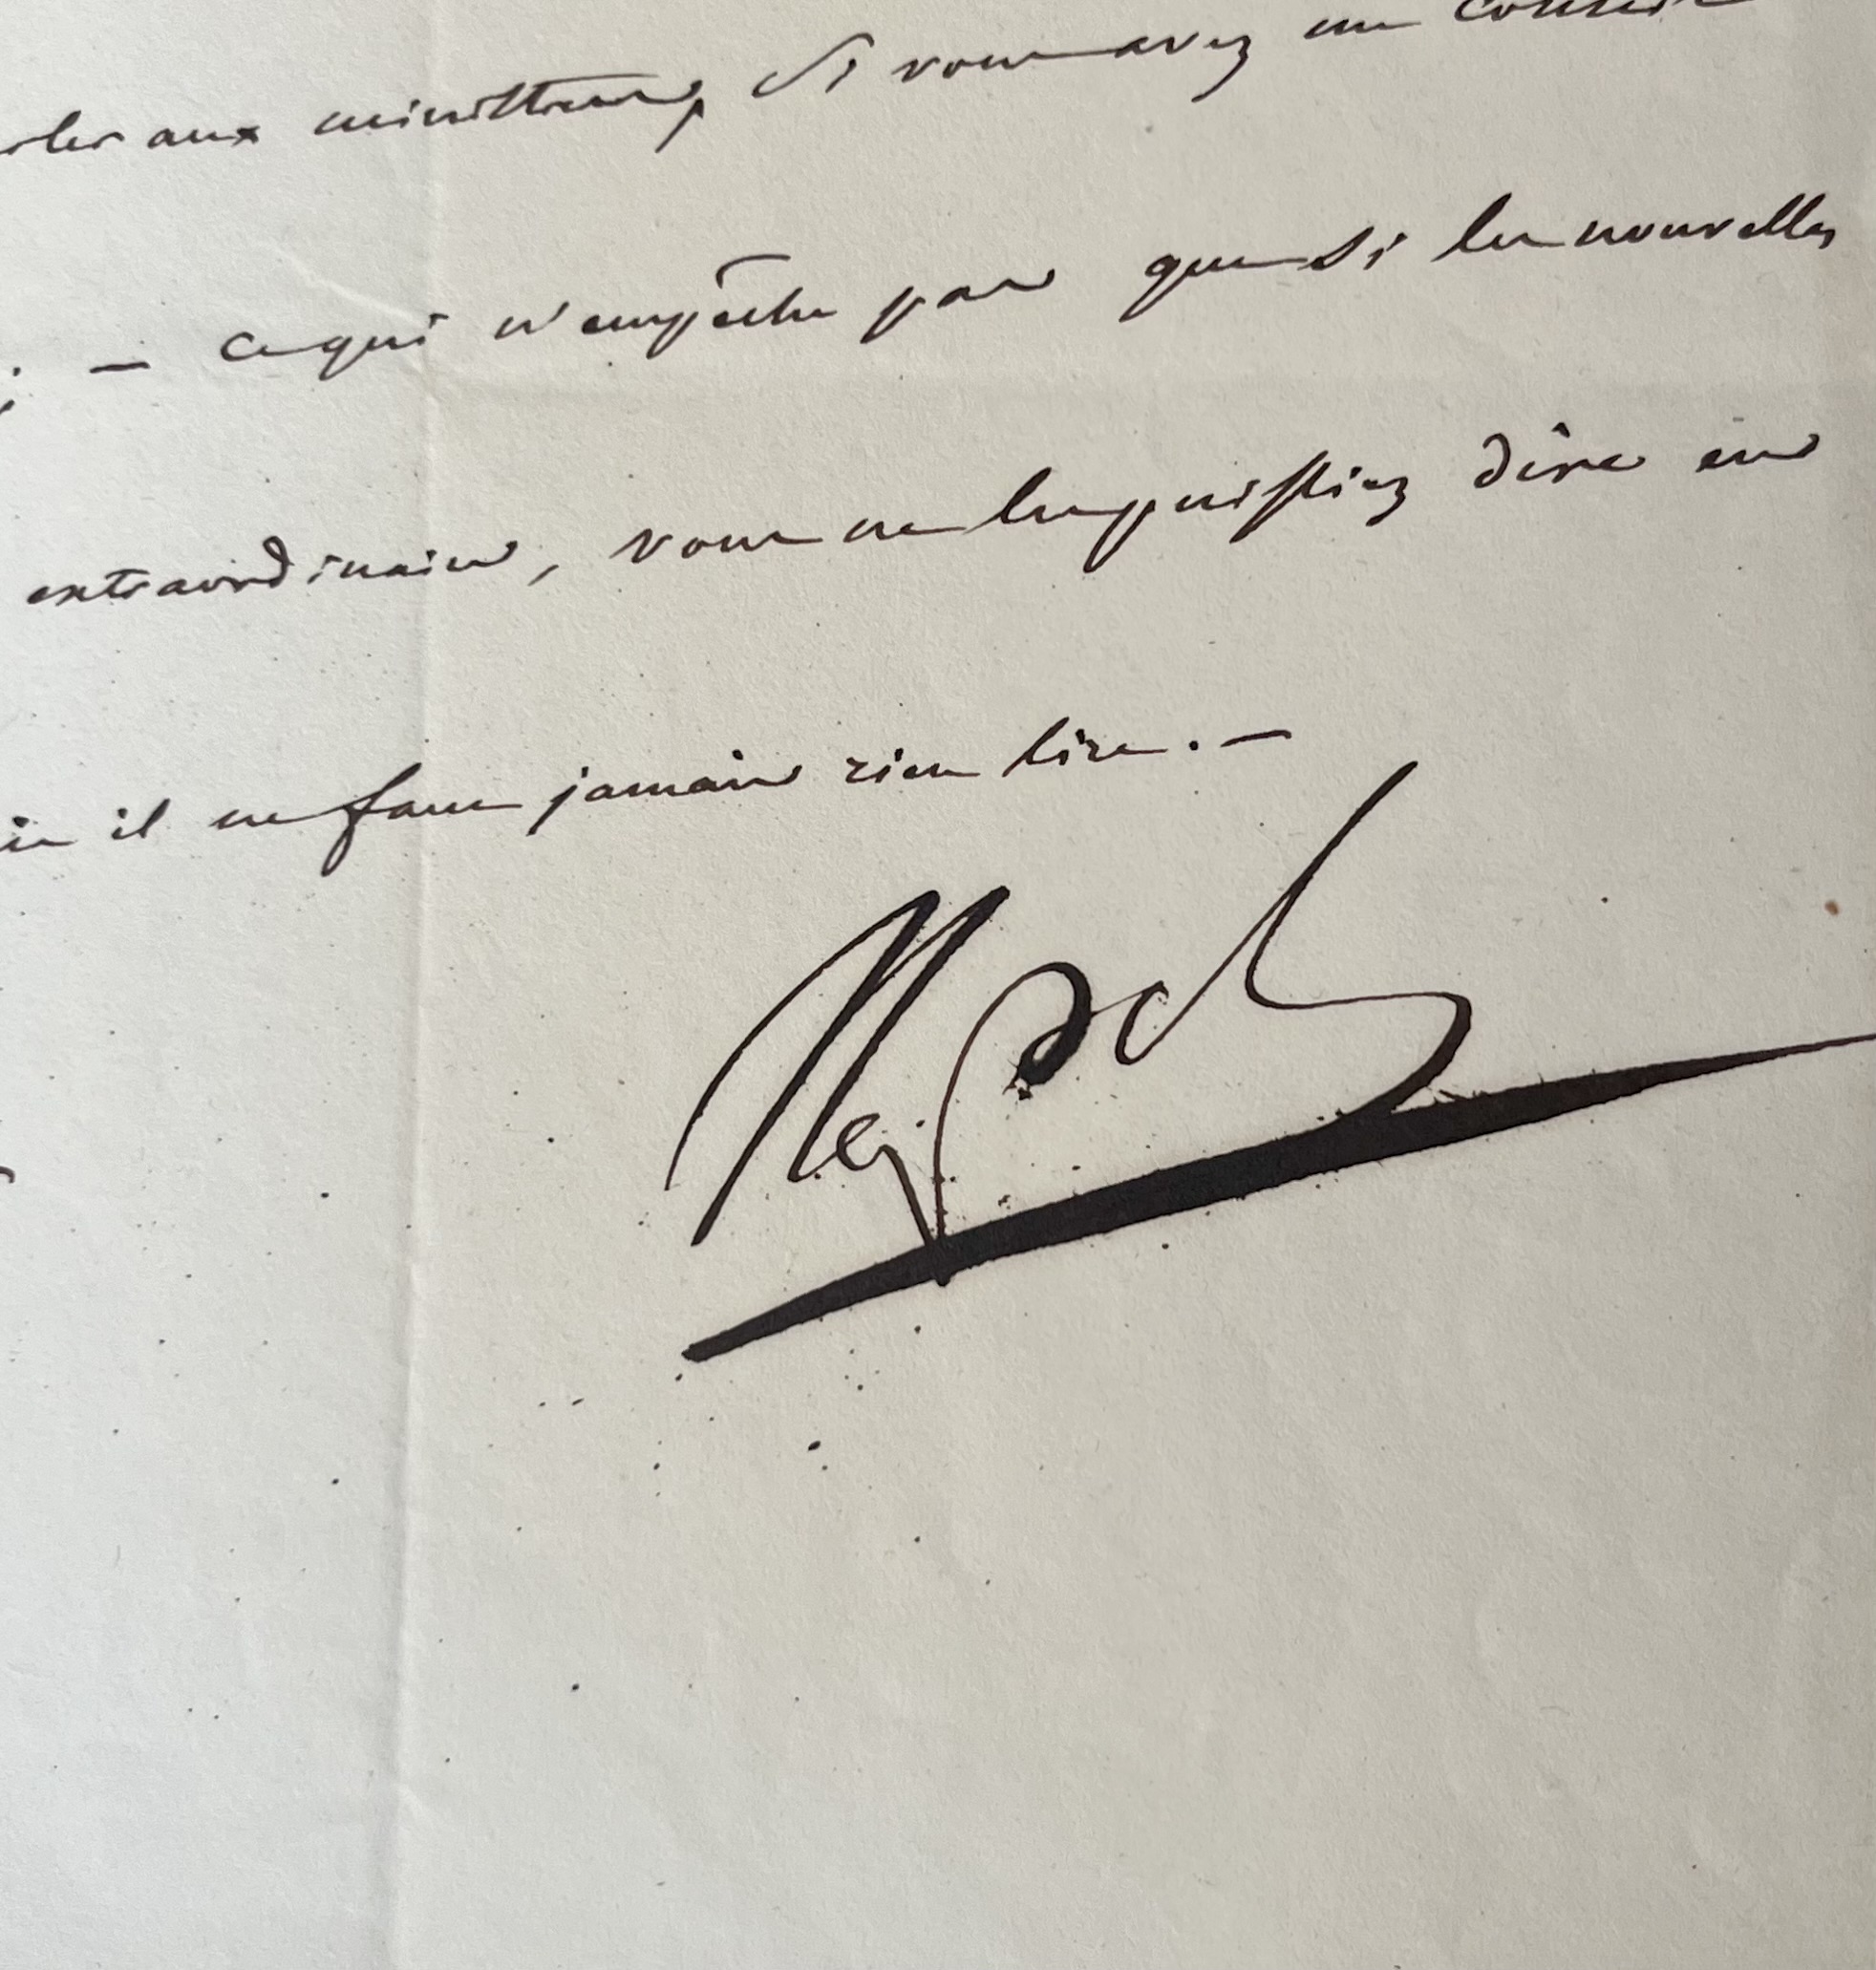 aux ministres, Si vous avez un Conseil
; — ce qui n'empêche pas que si les nouvelles
extraordinaires, vous ne les puissiez dire en
il ne faut jamais rien lire. —
Nap